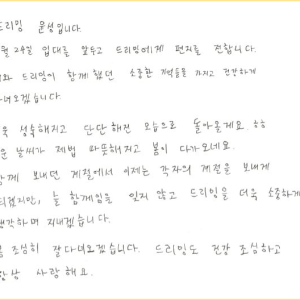 드리밍 윤성입니다.
월 24일 입대를 앞두고 드리밍에게 편지를 전합니다.
드리밍이 함께 했던 소중한 기억들을 가지고 건강하게
녀오겠습니다.
성숙해지고 단단해진 모습으로 돌아올게요. ㅎㅎ
운 날씨가 제법 따뜻해지고 봄이 다가오네요.
함께 보내던 계절에서 이제는 각자의 계절을 보내게
되겠지만, 늘 함께임을 잊지 않고 드리밍을 더욱 소중하게
생각하며 지내겠습니다.
조심히 잘 다녀오겠습니다. 드리밍도 건강 조심하고
항상 사랑해요.